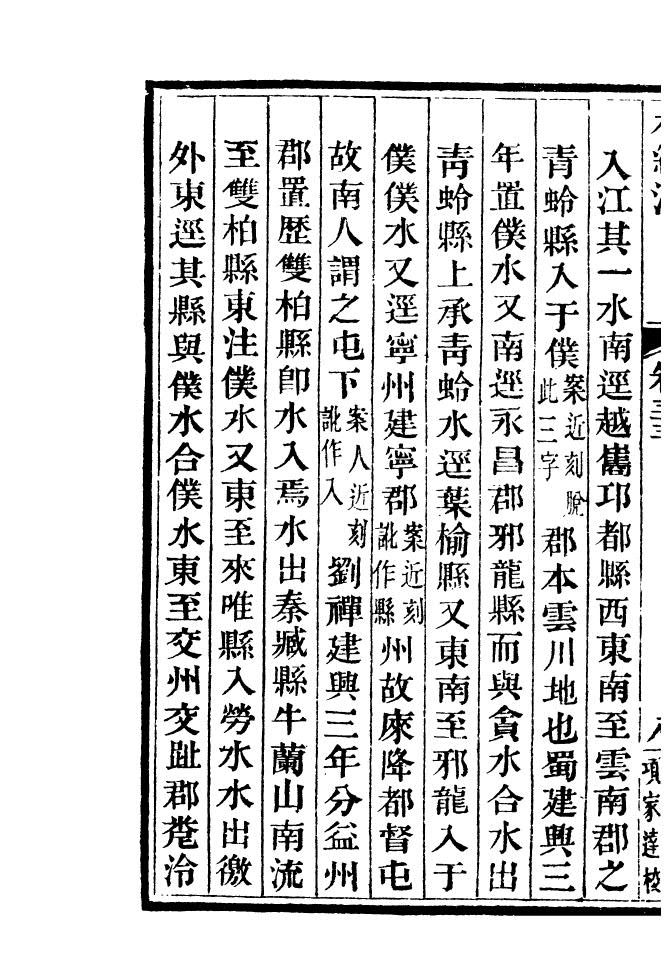 入江其一水南逕越嶲邛都縣西東南至雲南郡之
青蛉縣入于僕案近刻脫此三字郡本雲川地也蜀建興三
年置僕水又南逕永昌郡邪龍縣而與貪水合水出
青蛉縣上承青蛉水逕葉榆縣又東南至邪龍入于
僕僕水又逕寧州建寧郡案近刻訛作縣州故庲降都督屯
故南人謂之屯下案人近刻訛作入劉禪建興三年分益州
郡置歷雙柏縣卽水入焉水出秦臧縣牛蘭山南流
至雙柏縣東注僕水又東至來唯縣入勞水水出徼
外東逕其縣與僕水合僕水東至交州交趾郡麊泠